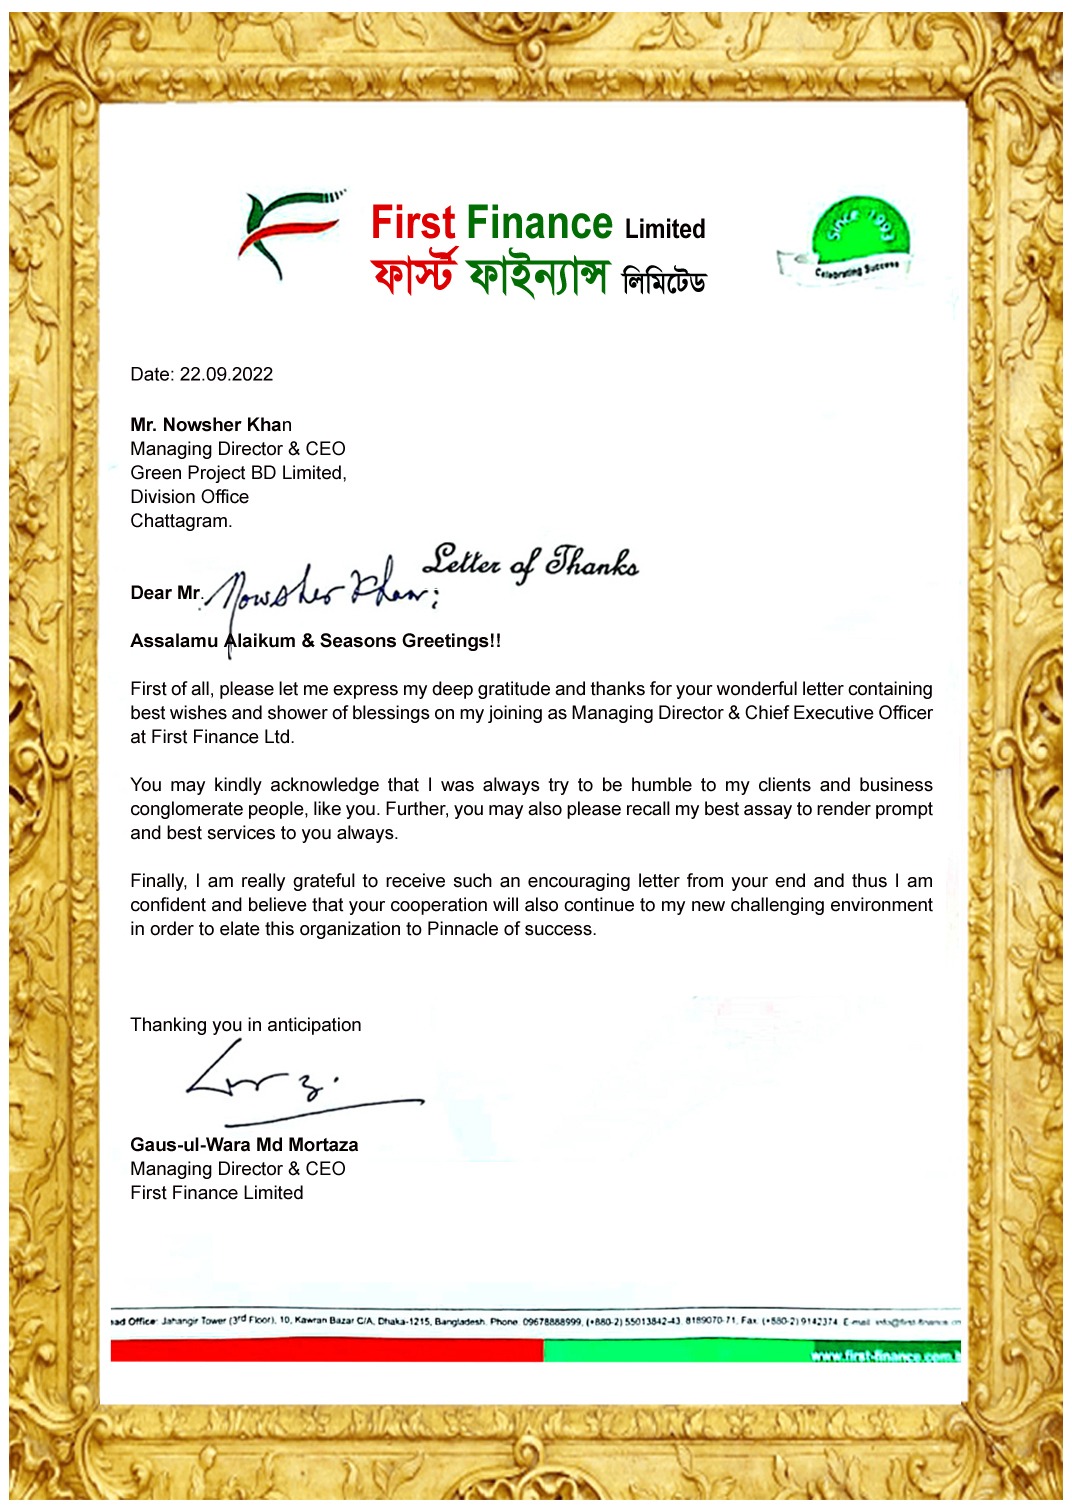 First Finance Limited
ফার্স্ট ফাইন্যান্স লিমিটেড
Since 1993
Celebrating Success
Date: 22.09.2022
Mr. Nowsher Khan
Managing Director & CEO
Green Project BD Limited,
Division Office
Chattagram.
Letter of Thanks
Dear Mr. Nowsher Khan:
Assalamu Alaikum & Seasons Greetings!!
First of all, please let me express my deep gratitude and thanks for your wonderful letter containing
best wishes and shower of blessings on my joining as Managing Director & Chief Executive Officer
at First Finance Ltd.
You may kindly acknowledge that I was always try to be humble to my clients and business
conglomerate people, like you. Further, you may also please recall my best assay to render prompt
and best services to you always.
Finally, I am really grateful to receive such an encouraging letter from your end and thus I am
confident and believe that your cooperation will also continue to my new challenging environment
in order to elate this organization to Pinnacle of success.
Thanking you in anticipation
Gaus-ul-Wara Md Mortaza
Managing Director & CEO
First Finance Limited
ead Office: Jahangir Tower (3rd Floor), 10, Kawran Bazar C/A, Dhaka-1215, Bangladesh. Phone: 09678888999, (+880-2) 55013842-43, 8189070-71, Fax: (+880-2) 9142374 E-mail: info@first-finance.co
www.first-finance.com.b